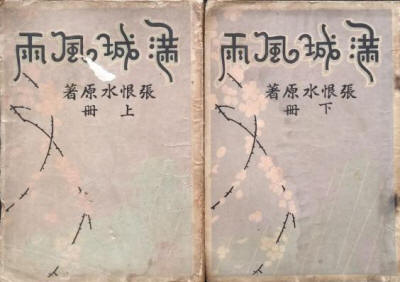 滿城風雨
張恨水原著
上冊
滿城風雨
張恨水原著
下冊